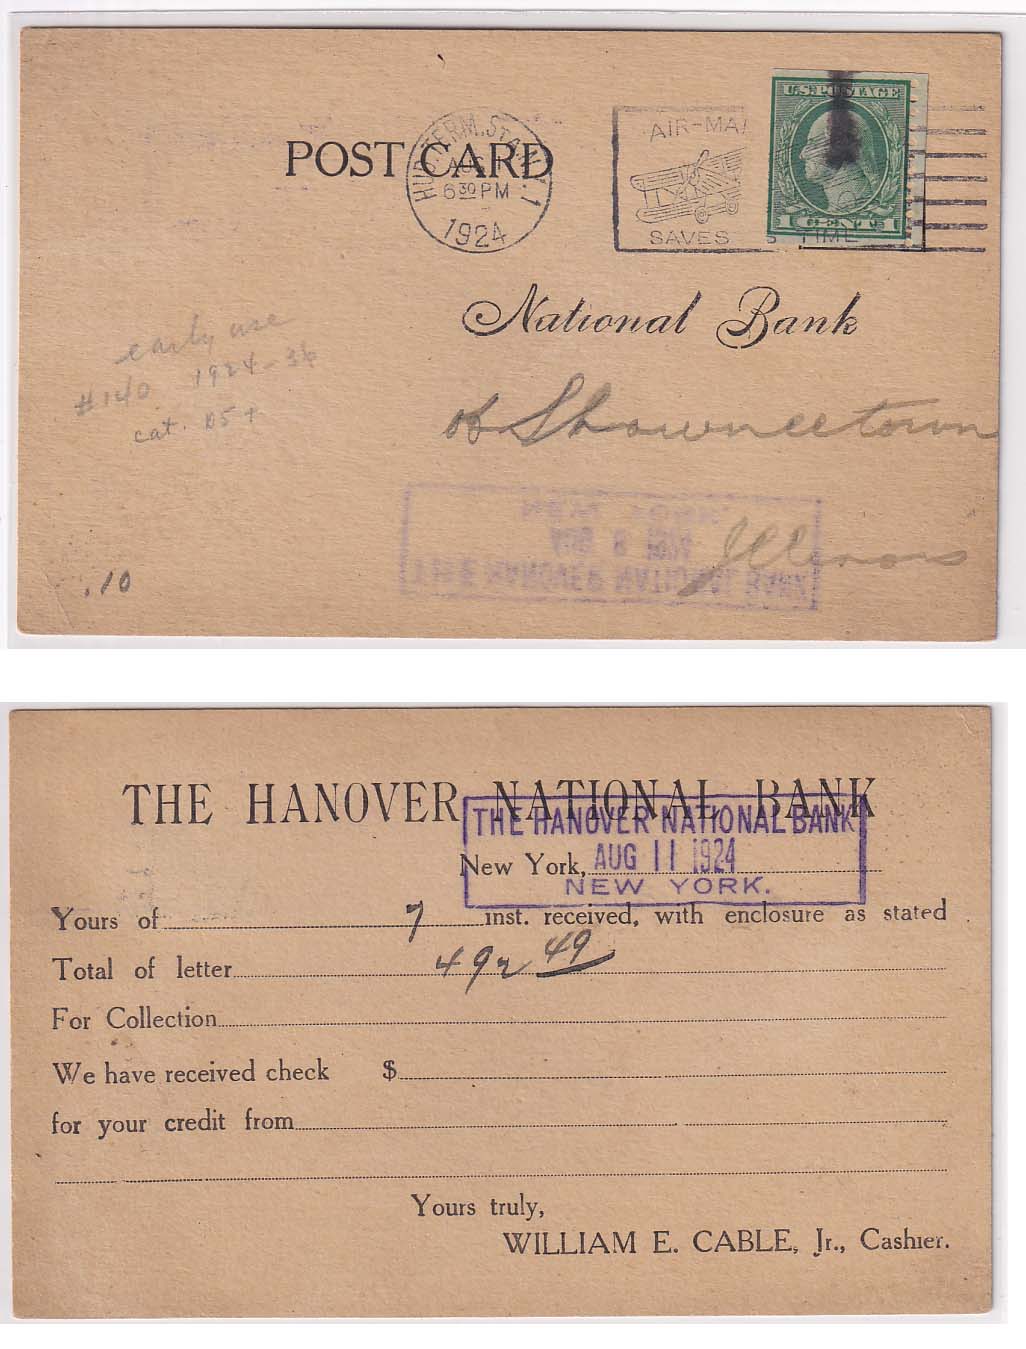 U.S. POSTAGE
AIR-MAI
POST CARD
HUD. TERM. STA. N.Y. 1
630 PM
1924
1 CENT 1
SAVES TIME
National Bank
early use
#140 1924-36
cat.
of Shawneetown
Illinois
NEW YORK
THE HANOVER NATIONAL BANK
.10
THE HANOVER NATIONAL BANK
THE HANOVER NATIONAL BANK
New York, AUG 11 1924
NEW YORK.
Yours of 7 inst. received, with enclosure as stated
Total of letter 492 49
For Collection
We have received check $
for your credit from
Yours truly,
WILLIAM E. CABLE, Jr., Cashier.